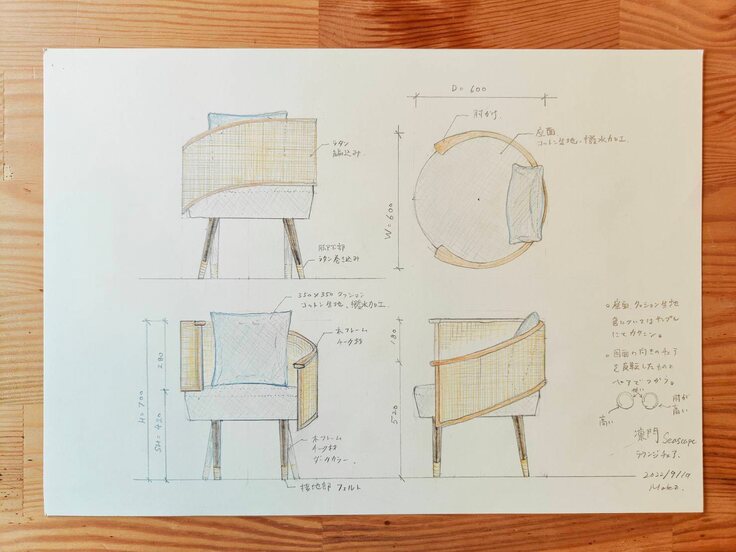 D=600
肘かけ
座面
コットン生地、撥水加工
ラタン
編込み
W=600
脚下部
ラタン巻き込み
350×350 クッション
コットン生地、撥水加工
木フレーム
チーク材
H=700
280
SH=420
180
520
木フレーム
チーク材
ダークカラー
接地部 フェルト
座面 クッション生地
色についてはサンプル
にて
図面の向きのチェア
を反転したものと
ペアでつかう。
高い
肘が
高い
澳門 Seascape
ラウンジチェア
2022/9/10